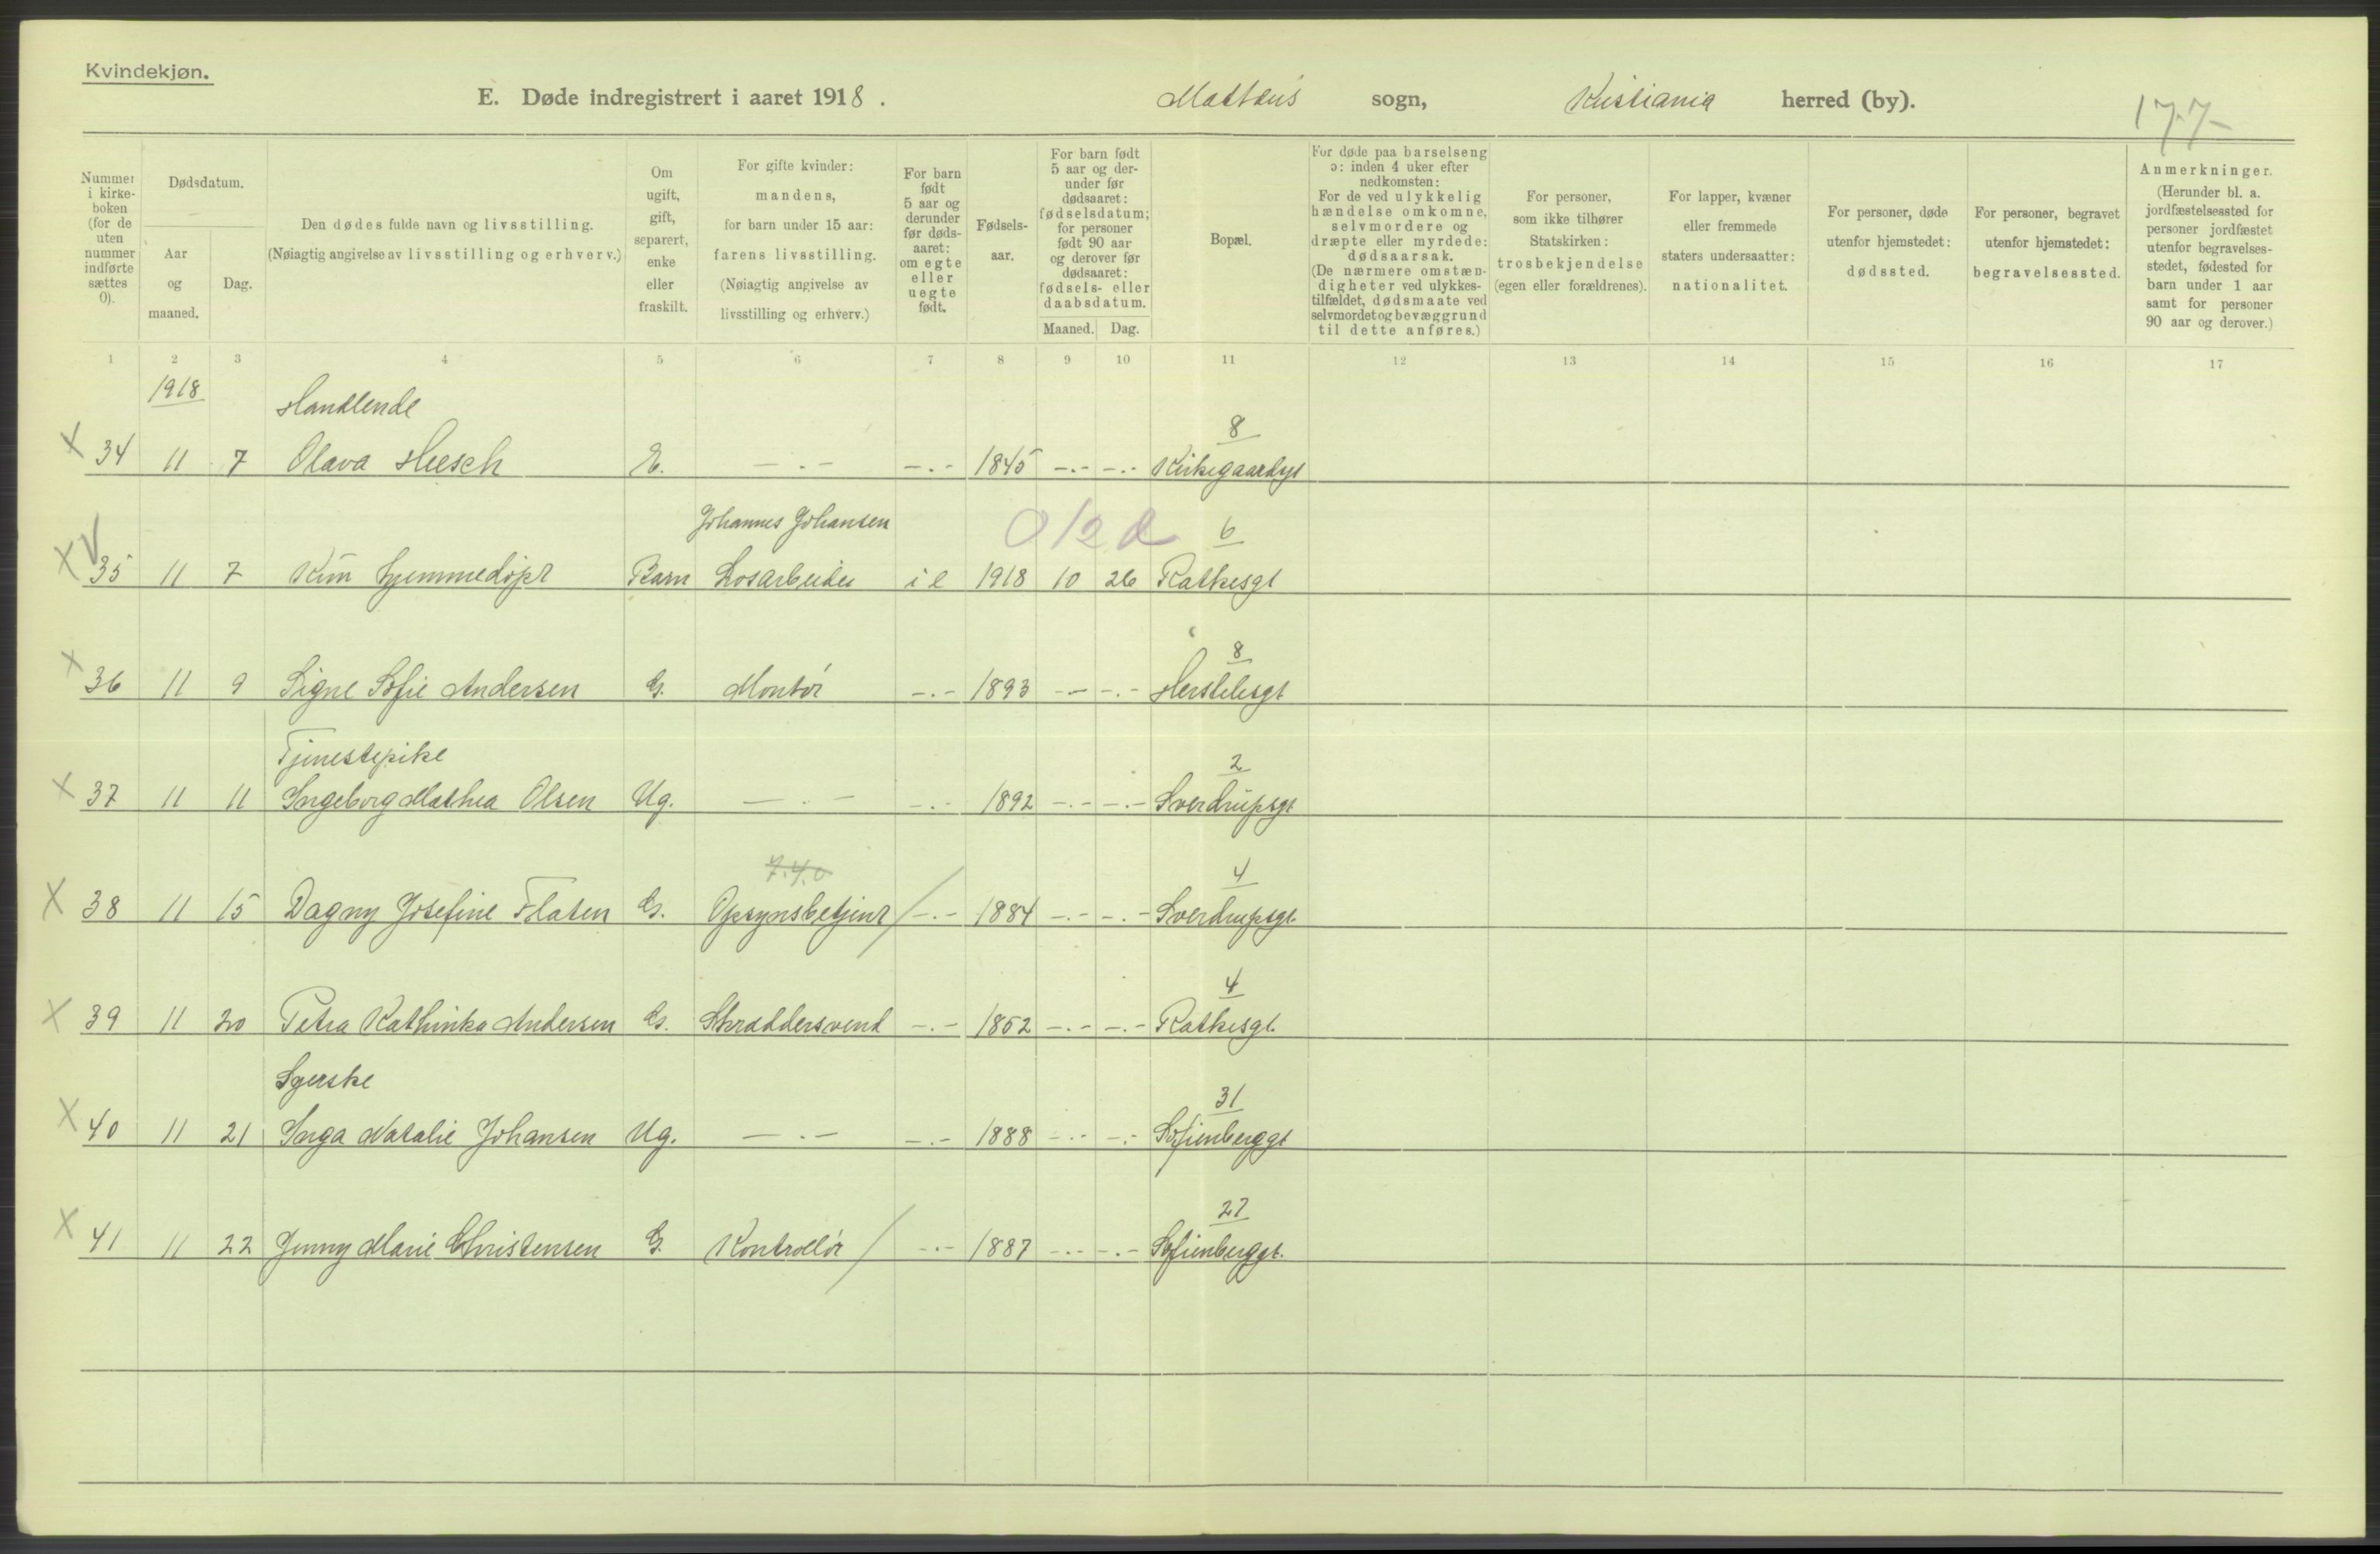 Kvindekjøn.
E. Døde indregistrert i aaret 1918. Mattæus sogn, Kristiania herred (by).
177
Nummer i kirkeboken (for de uten nummer indførte sættes 0).
Dødsdatum.
Aar og maaned.
Dag.
Den dødes fulde navn og livsstilling.
(Nøiagtig angivelse av livsstilling og erhverv.)
Om ugift, gift, separert, enke eller fraskilt.
For gifte kvinder: mandens, for barn under 15 aar: farens livsstilling. (Nøiagtig angivelse av livsstilling og erhverv.)
For barn født 5 aar og derunder før dødsaaret: om egte eller uegte født.
Fødselsaar.
For barn født 5 aar og derunder før dødsaaret: fødselsdatum; for personer født 90 aar og derover før dødsaaret: fødsels- eller daabsdatum.
Maaned. Dag.
Bopæl.
For døde paa barselseng ɔ: inden 4 uker efter nedkomsten: For de ved ulykkelig hændelse omkomne, selvmordere og dræpte eller myrdede: dødsaarsak. (De nærmere omstændigheter ved ulykkestilfældet, dødsmaate ved selvmordet og bevæggrund til dette anføres.)
For personer, som ikke tilhører Statskirken: trosbekjendelse (egen eller forældrenes).
For lapper, kvæner eller fremmede staters undersaatter: nationalitet.
For personer, døde utenfor hjemstedet: dødssted.
For personer, begravet utenfor hjemstedet: begravelsessted.
Anmerkninger. (Herunder bl. a. jordfæstelsessted for personer jordfæstet utenfor begravelsesstedet, fødested for barn under 1 aar samt for personer 90 aar og derover.)
1 2 3 4 5 6 7 8 9 10 11 12 13 14 15 16 17
1918
Handlende
8
X 34 11 7 Olava Heesch E. —.— —.— 1845 —.— —.— Kirkegaardsgt
Johannes Johansen 0 12 d 6
X V 35 11 7 Kun hjemmedøpt Barn Løsarbeider i e 1918 10 26 Rathkesgt
8
X 36 11 9 Signe Sofie Andersen G. Montør —.— 1893 —.— —.— Herslebsgt
Tjenestepike 2
X 37 11 11 Ingeborg Mathea Olsen Ug. —.— —.— 1892 —.— —.— Sverdrupsgt
7.4.0 4
X 38 11 15 Dagny Josefine Flaten G. Opsynsbetjent / —.— 1884 —.— —.— Sverdrupsgt.
4
X 39 11 20 Petra Kathinka Andersen G. Skræddersvend —.— 1852 —.— —.— Rathkesgt.
Syerske 31
X 40 11 21 Inga Natalie Johansen Ug. —.— —.— 1888 —.— —.— Sofienberggt
27
X 41 11 22 Jenny Marie Christensen G. Kontrollør / —.— 1887 —.— —.— Sofienberggt.